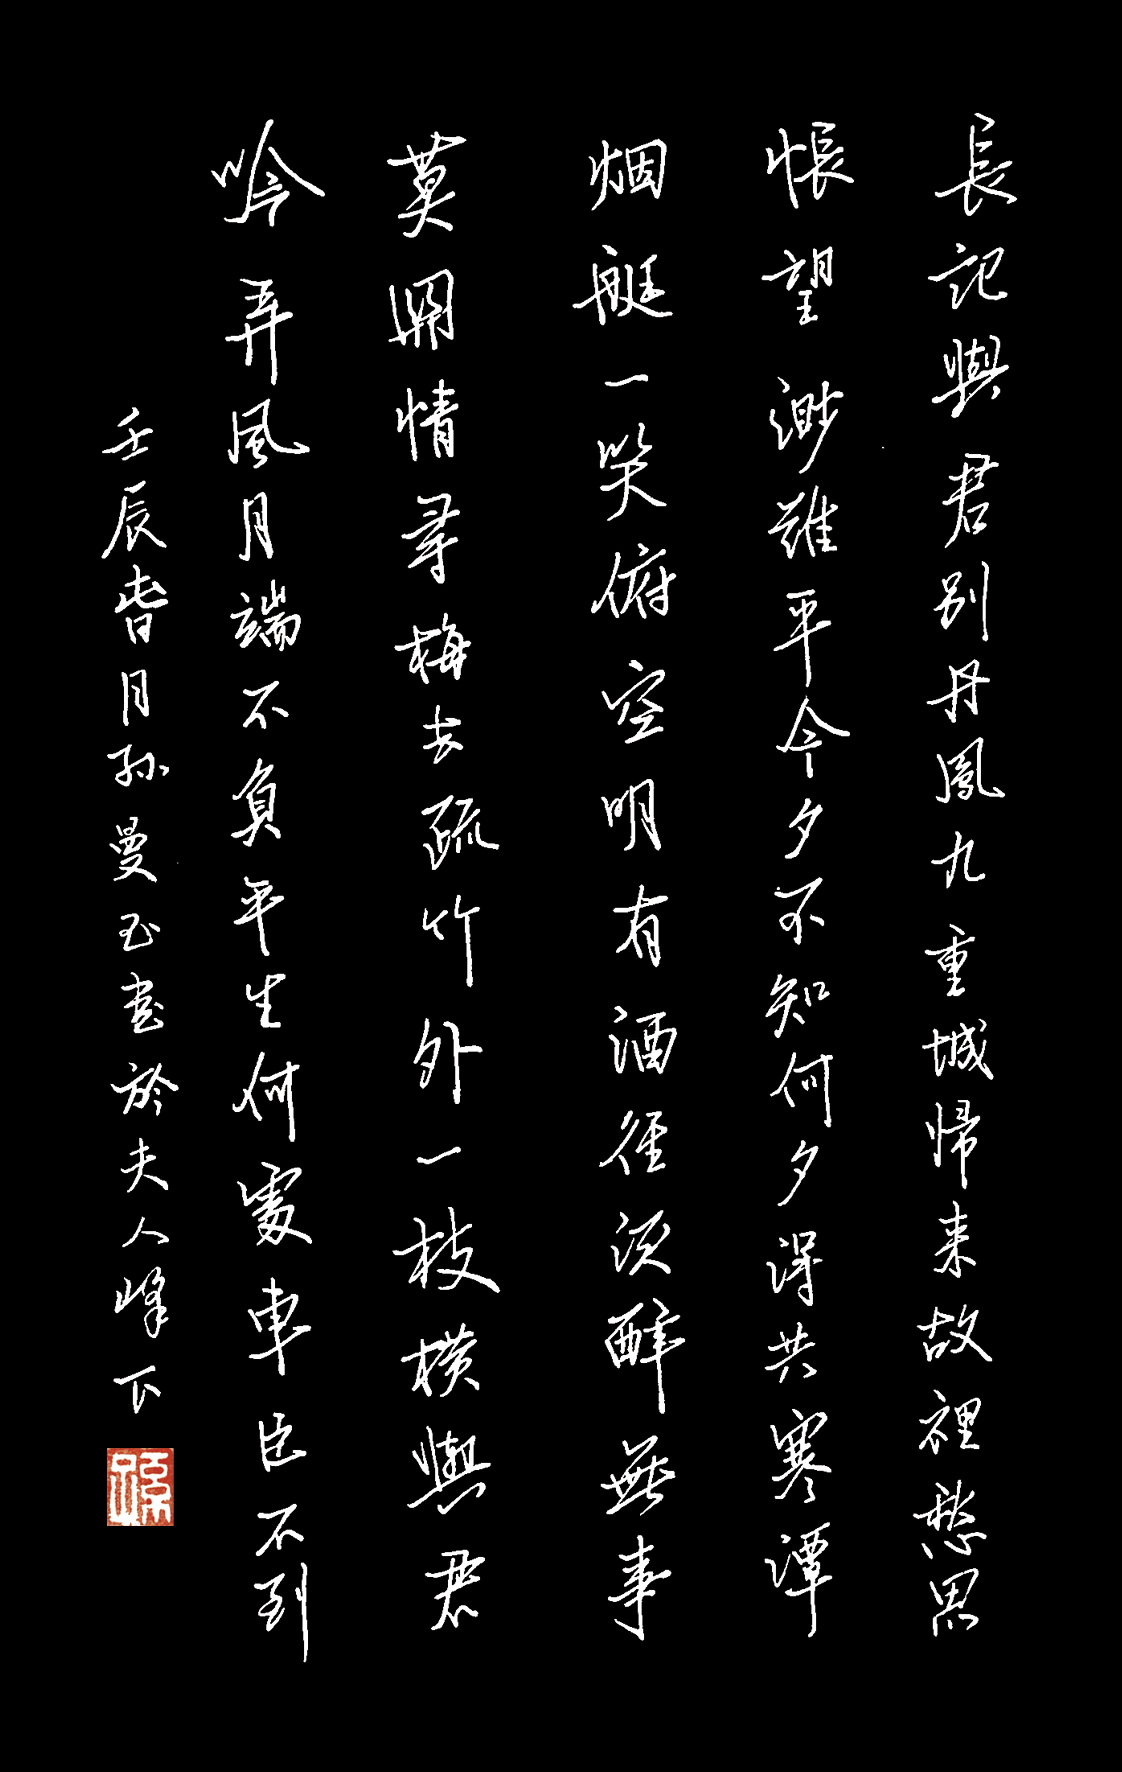 長記與君别丹鳳九重城帰来故裡愁思
悵望渺難平今夕不知何夕得共寒潭
烟艇一笑俯空明有酒徑須醉無事
莫関情尋梅去疏竹外一枝横與君
吟弄風月端不負平生何處車臣不到
壬辰旾月孫曼玉書於夫人峰下